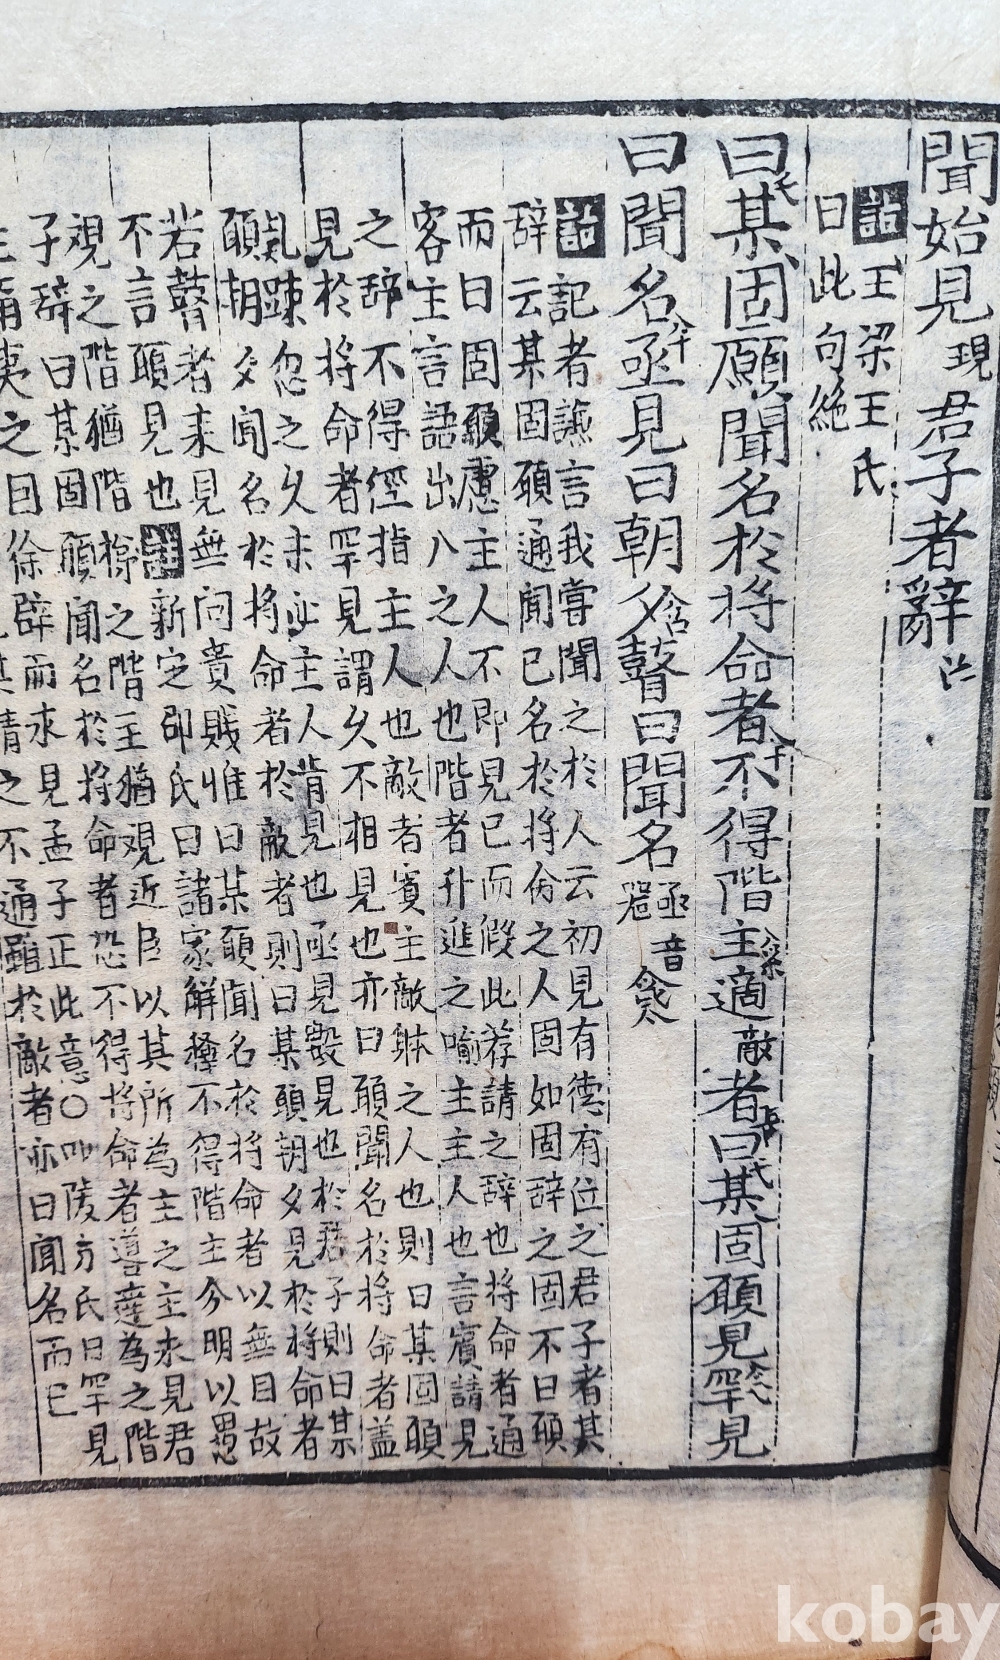 聞始見現君子者辭
註王梁王氏
曰此句絶
曰某固願聞名於將命者不得階主適敵者曰某固願見罕見
曰聞名亟見曰朝夕瞽曰聞名亟音器
註記者謙言我嘗聞之於人云初見有德有位之君子者其
辞云某固願通聞己名於將命之人固如固辞之固不曰願
而曰固願慮主人不即見己而假此荐請之辞也將命者通
客主言語出入之人也階者升進之喻主主人也言賓請見
之辞不得徑指主人也敵者賓主敵躰之人也則曰某固願
見於將命者罕見謂久不相見也亦曰願聞名於將命者盖
亂踈忽之久未必主人肯見也亟見數見也於君子則曰某
願朝夕聞名於將命者於敵者則曰某願朝夕見於將命者
若瞽者来見無问貴賎惟曰某願聞名於將命者以無目故
不言願見也註新定邵氏曰諸家解釋不得階主今明以愚
覌之階猶階梯之階主猶覌近臣以其所為主之主未見君
子辞曰某固願聞名於將命者恐不得將命者導達為之階
主猶夷之因徐辟而求見孟子正此意○陵方氏曰罕見
其請之不通雖於敵者亦曰聞名而已
kobay